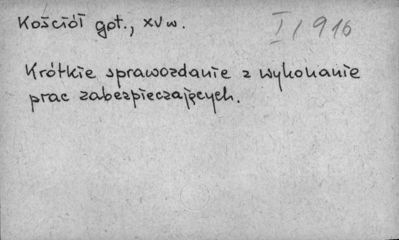 Kościół got., XV w.
I / 916
Krótkie sprawozdanie z wykonanie
prac zabezpieczających.